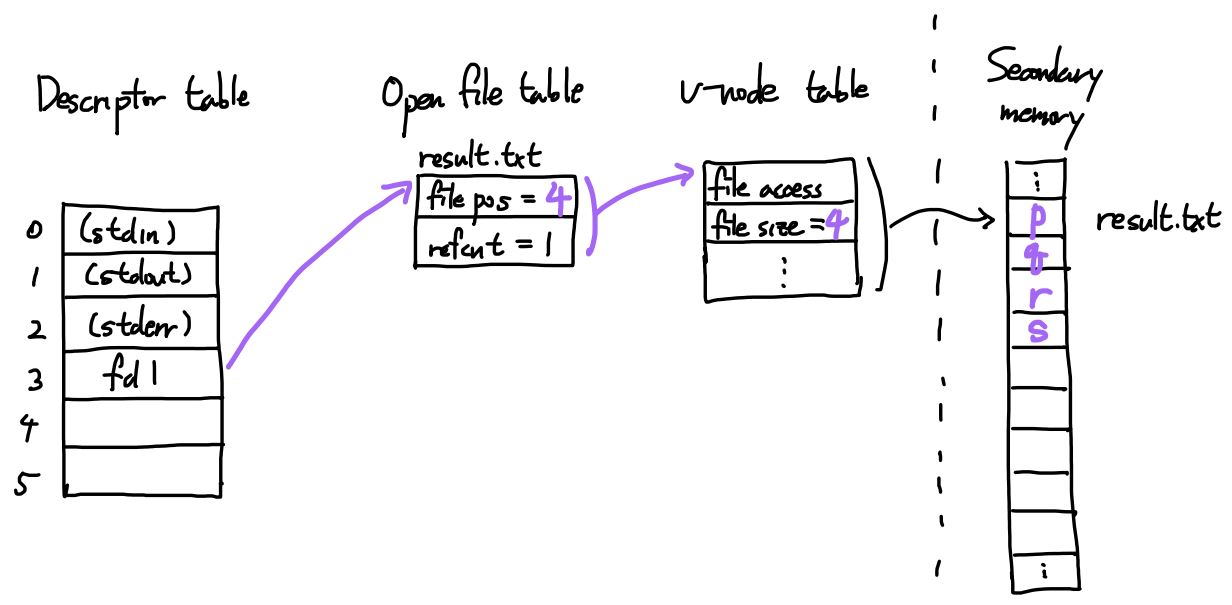 Descriptor table
0 (stdin)
1 (stdout)
2 (stderr)
3 fd1
4
5
Open file table
result.txt
file pos = 4
refcnt = 1
v-node table
file access
file size = 4
⋮
Secondary
memory
⋮
p
q
r
s
⋮
result.txt